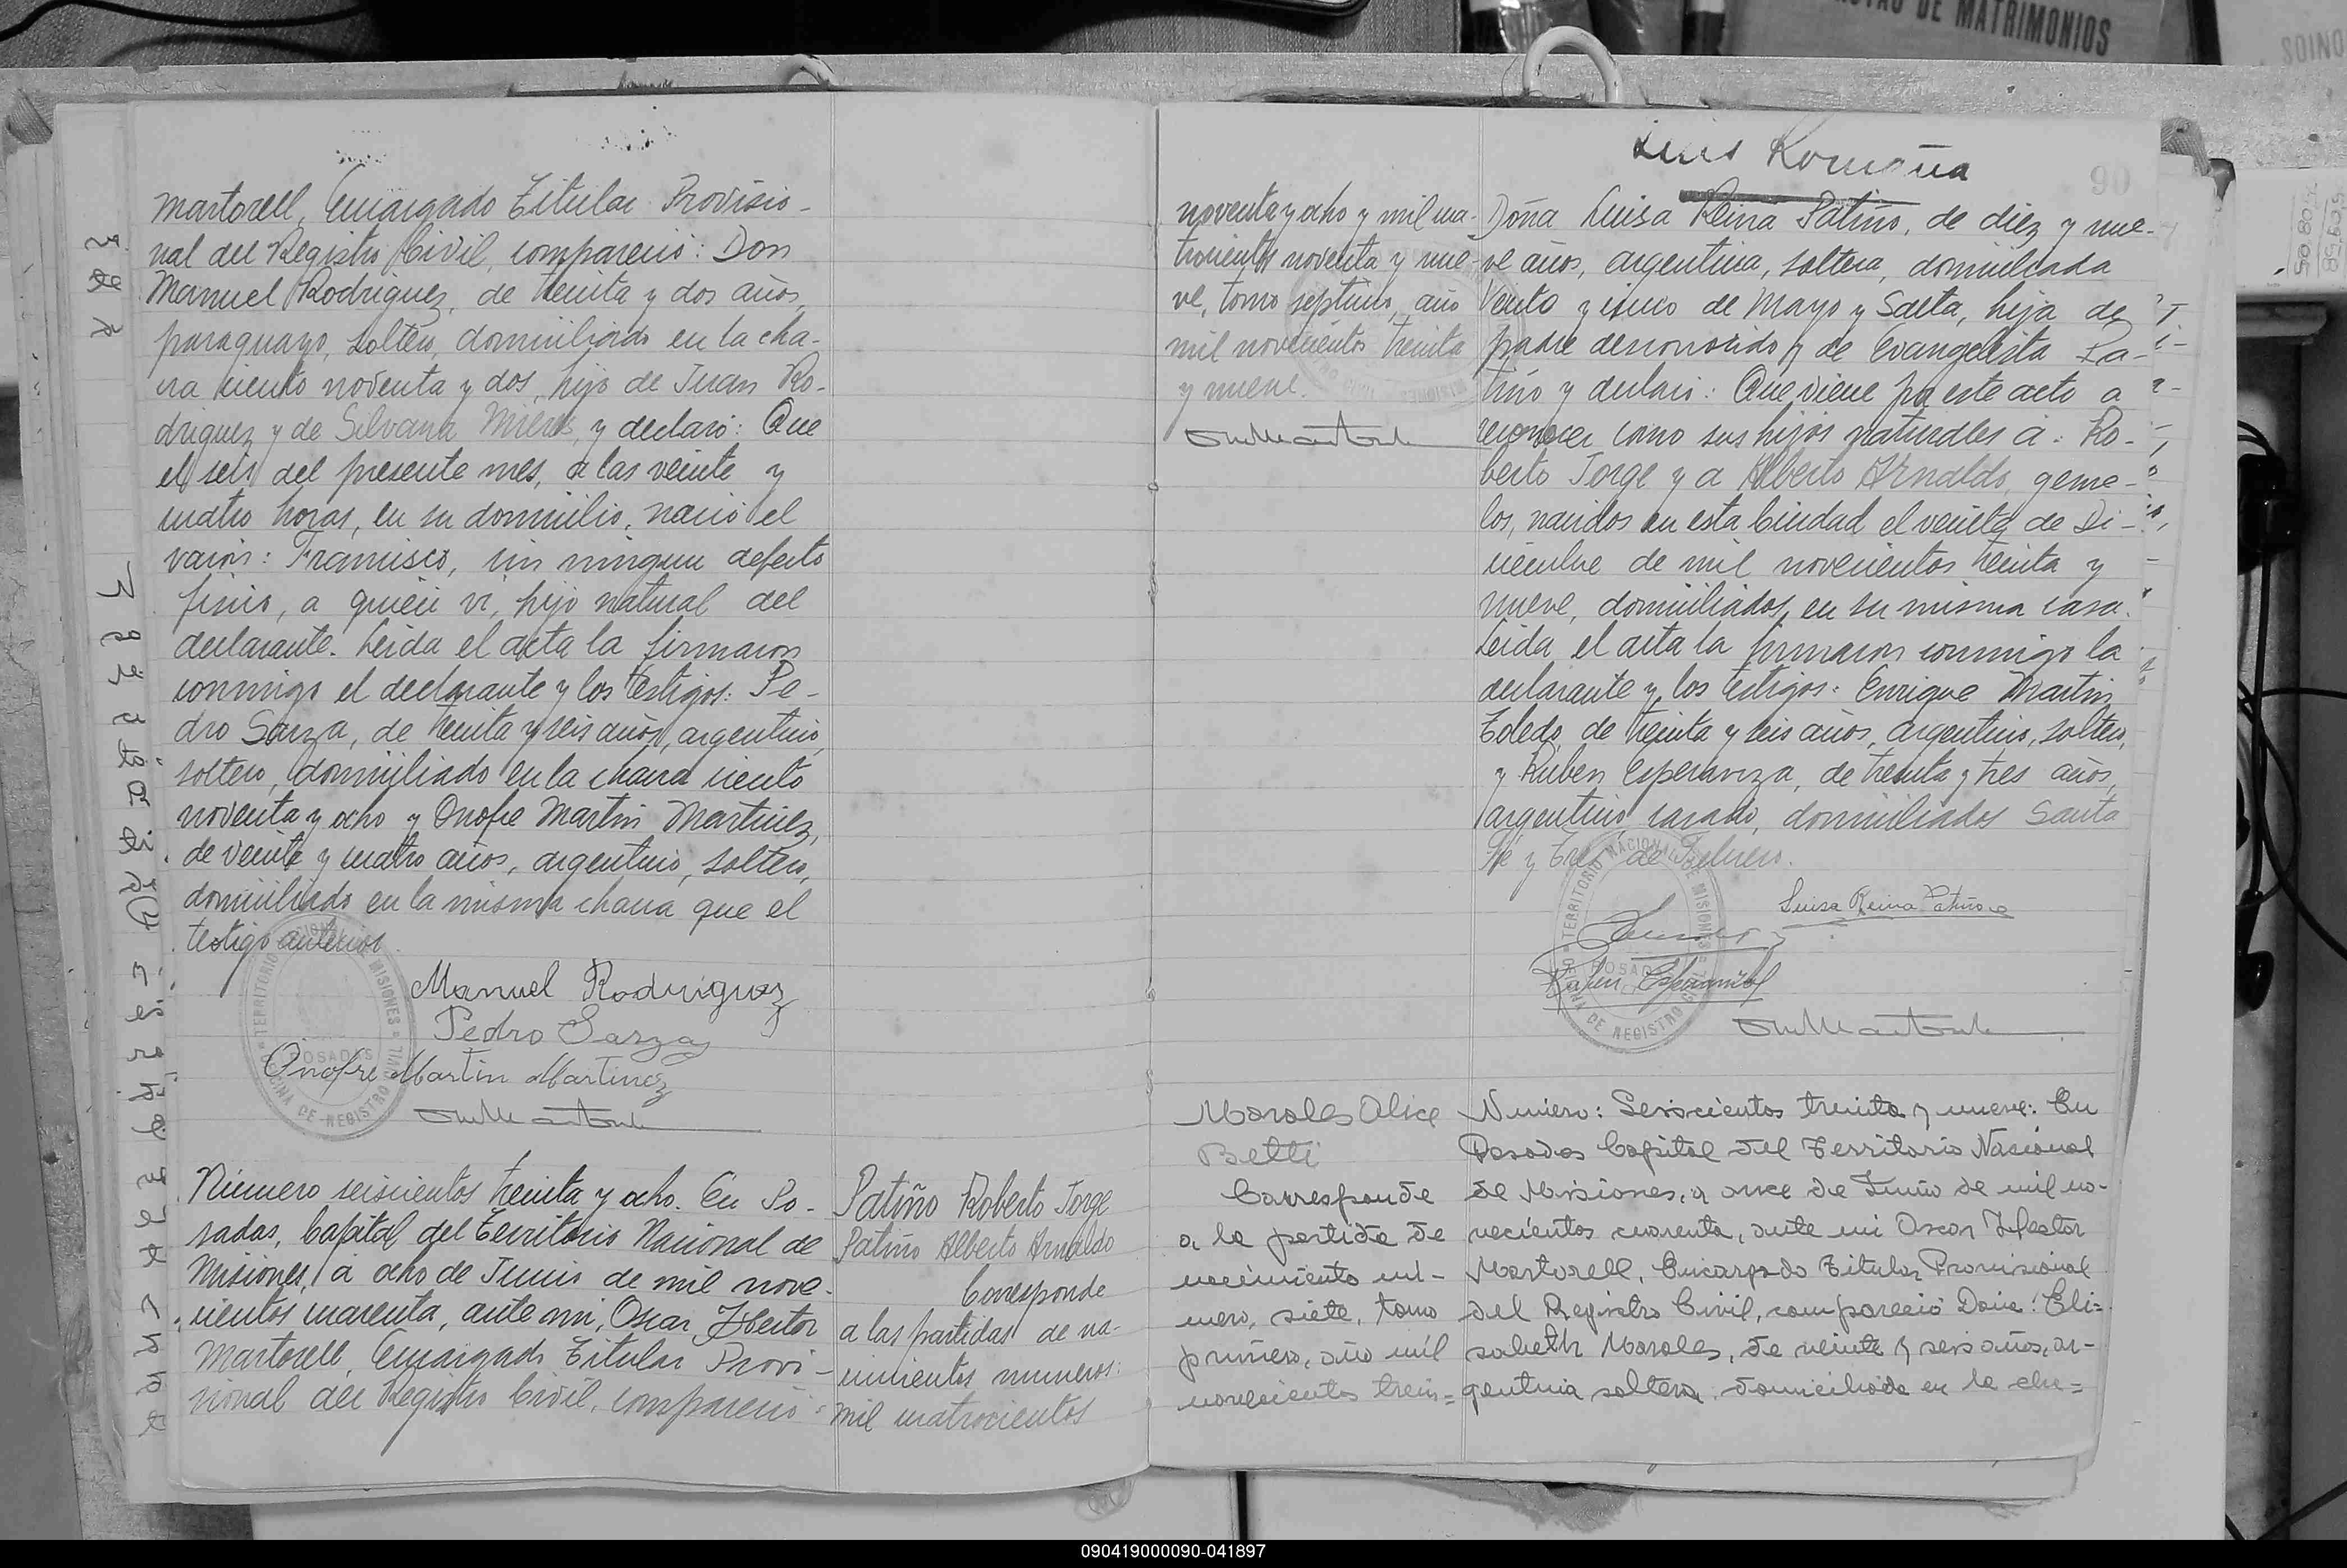 TAS DE MATRIMONIOS
martorell, Encargado Titular Provisio-
nal del Registro Civil, compareció: Don
Manuel Rodriguez, de treinta y dos años,
paraguayo, soltero, domiciliado en la cha-
cra ciento noventa y dos, hijo de Juan Ro-
driguez y de Silvana Mieres, y declaró: Que
el seis del presente mes, a las veinte y
cuatro horas, en su domicilio, nació el
varón: Francisco, sin ningun defecto
fisico, a quien vi, hijo natural del
declarante. Leida el acta la firmaron
conmigo el declarante y los testigos: Pe-
dro Sarza, de treinta y seis años, argentino,
soltero, domiciliado en la chacra ciento
noventa y ocho y Onofre Martin Martinez,
de veinte y cuatro años, argentino, soltero,
domiciliado en la misma chacra que el
testigo anterior.
Manuel Rodriguez
Pedro Sarza
Onofre Martin Martinez
TERRITORIO NACIONAL DE MISIONES
POSADAS
OFICINA DE REGISTRO CIVIL
Número seiscientos treinta y ocho. En Po-
sadas, Capital del Territorio Nacional de
Misiones, a ocho de Junio de mil nove-
cientos cuarenta, ante mi, Oscar Hector
Martorell, Encargado Titular Provi-
sional del Registro Civil, compareció:
Patiño Roberto Jorge
Patiño Alberto Arnaldo
Corresponde
a las partidas de na-
cimientos numeros:
mil cuatrocientos
noventa y ocho y mil cua-
trocientos noventa y nue-
ve, tomo septimo, año
mil novecientos treinta
y nueve.
Luis Romaña
90
Doña Luisa Reina Patiño, de diez y nue-
ve años, argentina, soltera, domiciliada
Veinte y cinco de Mayo y Salta, hija de
padre desconocido y de Evangelista Pa-
tiño y declaró: Que viene por este acto a
reconocer como sus hijos naturales a: Ro-
berto Jorge y a Alberto Arnaldo, geme-
los, nacidos en esta Ciudad el veinte de Di-
ciembre de mil novecientos treinta y
nueve, domiciliados en su misma casa.
Leida el acta la firmaron conmigo la
declarante y los testigos: Enrique Martin
Toledo, de treinta y seis años, argentino, soltero,
y Ruben Esperanza, de treinta y tres años,
argentino, casado, domiciliados Santa
Fé y Tres de Febrero.
Luisa Reina Patiño
Ruben Esperanza
TERRITORIO NACIONAL DE MISIONES
POSADAS
OFICINA DE REGISTRO CIVIL
Morales Alice
Betti
Corresponde
a la partida de
nacimiento nú-
mero, siete, tomo
primero, año mil
novecientos trein=
Numero: Seiscientos treinta y nueve: En
Posadas Capital del Territorio Nacional
de Misiones, a once de Junio de mil no-
vecientos cuarenta, ante mi Oscar Hector
Martorell, Encargado Titular Provisional
del Registro Civil, compareció Doña: Eli=
sabeth Morales, de veinte y seis años, ar-
gentina soltera, domiciliada en la cha=
090419000090-041897